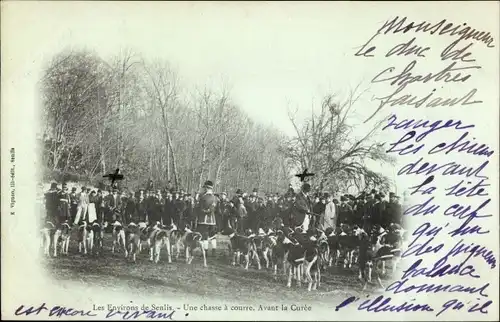 Monseigneur
le duc de
Chartres
faisant
ranger
les chiens
devant
la tête
du cerf
qu'un
des piqueurs
balance
donnant
l'illusion qu'il
est encore vivant.
E. Vignon, lib.-édit., Senlis
Les Environs de Senlis. - Une chasse à courre. Avant la Curée